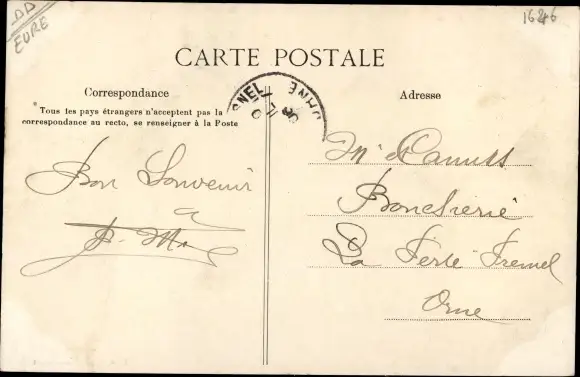 BD
EURE
16246
CARTE POSTALE
Correspondance
Adresse
* Tous les pays étrangers n'acceptent pas la
correspondance au recto, se renseigner à la Poste
Bon Souvenir
Mr
Boncherie
La Ferté Fresnel
Orne